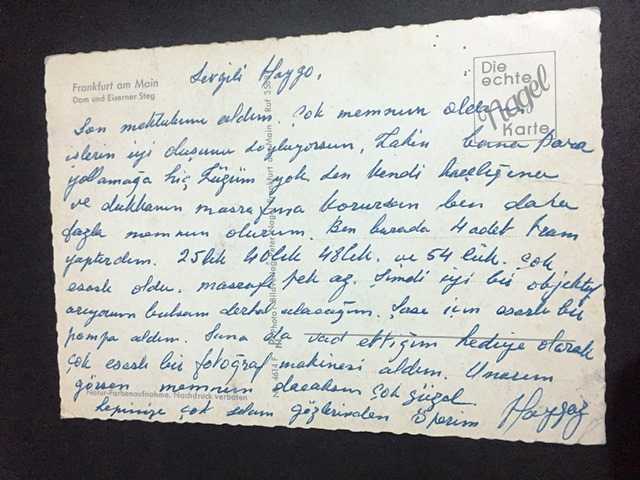 Frankfurt am Main
Dom und Eiserner Steg
Sevgili Haygo,
Die
echte
Nagel
Karte
Son mektubunu aldım. Çok memnun oldum
işlerin iyi duşunu söyluyorsun, Lakin bana para
yollamağa hiç Lüzüm yok sen kendi harçlığına
ve dukkanın masrafına korursan ben daha
fazla memnun olurum. Ben burada 4 adet tram
yapturdum. 25lik 40lık 48lik. ve 54 lük. Çok
esaslı oldu. masrafı pek az. Şimdi iyi bir objektif
arıyorum bulsam derhal alacağım. Şase için esaslı bir
pompa aldım. Sana da vad ettiğim hediye olarak
çok esaslı bir fotoğraf makinesi aldım. Unarım
görsen memnun olacaksın çok güzel
Natur-Farbenaufnahme, Nachdruck verboten
hepinize çok selam gözlerinden öperim Haygaz